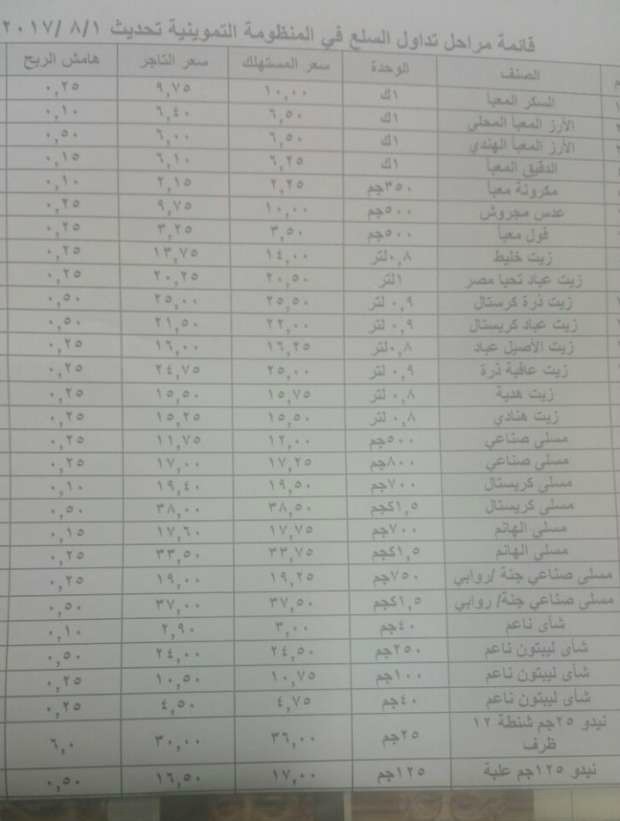 قائمة مراحل تداول السلع في المنظومة التموينية تحديث ٢٠١٧/ ٨/١
م الصنف الوحدة سعر المستهلك سعر التاجر هامش الربح
السكر المعبا ١ك ١٠,٠٠ ٩,٧٥ ٠,٢٥
الأرز المعبا المحلى ١ك ٦,٥٠ ٦,٤٠ ٠,١٠
الأرز المعبا الهندي ١ك ٦,٥٠ ٦,٠٠ ٠,٥٠
الدقيق المعبا ١ك ٦,٢٥ ٦,١٠ ٠,١٥
مكرونة معبا ٣٥٠جم ٢,٢٥ ٢,١٥ ٠,١٠
عدس مجروش ٥٠٠جم ١٠,٠٠ ٩,٧٥ ٠,٢٥
فول معبا ٥٠٠جم ٣,٥٠ ٣,٢٥ ٠,٢٥
زيت خليط ٠,٨لتر ١٤,٠٠ ١٣,٧٥ ٠,٢٥
زيت عباد تحيا مصر ١لتر ٢٠,٥٠ ٢٠,٢٥ ٠,٢٥
زيت ذرة كرستال ٠,٩ لتر ٢٥,٥٠ ٢٥,٠٠ ٠,٥٠
زيت عباد كريستال ٠,٩ لتر ٢٢,٠٠ ٢١,٥٠ ٠,٥٠
زيت الأصيل عباد ٠,٨لتر ١٦,٢٥ ١٦,٠٠ ٠,٢٥
زيت عافية ذرة ٠,٩ لتر ٢٥,٠٠ ٢٤,٧٥ ٠,٢٥
زيت هدية ٠,٨ لتر ١٥,٧٥ ١٥,٥٠ ٠,٢٥
زيت هنادي ٠,٨ لتر ١٥,٥٠ ١٥,٢٥ ٠,٢٥
مسلى صناعي ٥٠٠جم ١٢,٠٠ ١١,٧٥ ٠,٢٥
مسلى صناعي ٨٠٠جم ١٧,٢٥ ١٧,٠٠ ٠,٢٥
مسلى كريستال ٧٠٠جم ١٩,٥٠ ١٩,٤٠ ٠,١٠
مسلى كريستال ١,٥كجم ٣٨,٥٠ ٣٨,٠٠ ٠,٥٠
مسلى الهانم ٧٠٠جم ١٧,٧٥ ١٧,٦٠ ٠,١٥
مسلى الهانم ١,٥كجم ٣٣,٧٥ ٣٣,٥٠ ٠,٢٥
مسلى صناعي جنة /روابي ٧٥٠جم ١٩,٢٥ ١٩,٠٠ ٠,٢٥
مسلى صناعي جنة/ روابي ١,٥كجم ٣٧,٥٠ ٣٧,٠٠ ٠,٥٠
شأى ناعم ٤٠جم ٣,٠٠ ٢,٩٠ ٠,١٠
شأى ليبتون ناعم ٢٥٠جم ٢٤,٥٠ ٢٤,٠٠ ٠,٥٠
شأى ليبتون ناعم ١٠٠جم ١٠,٧٥ ١٠,٥٠ ٠,٢٥
شأى ليبتون ناعم ٤٠جم ٤,٧٥ ٤,٥٠ ٠,٢٥
نيدو ٢٥جم شنطة ١٢
ظرف ٢٥جم ٣٦,٠٠ ٣٠,٠٠ ٦,٠
نيدو ١٢٥جم علبة ١٢٥جم ١٧,٠٠ ١٦,٥٠ ٠,٥٠